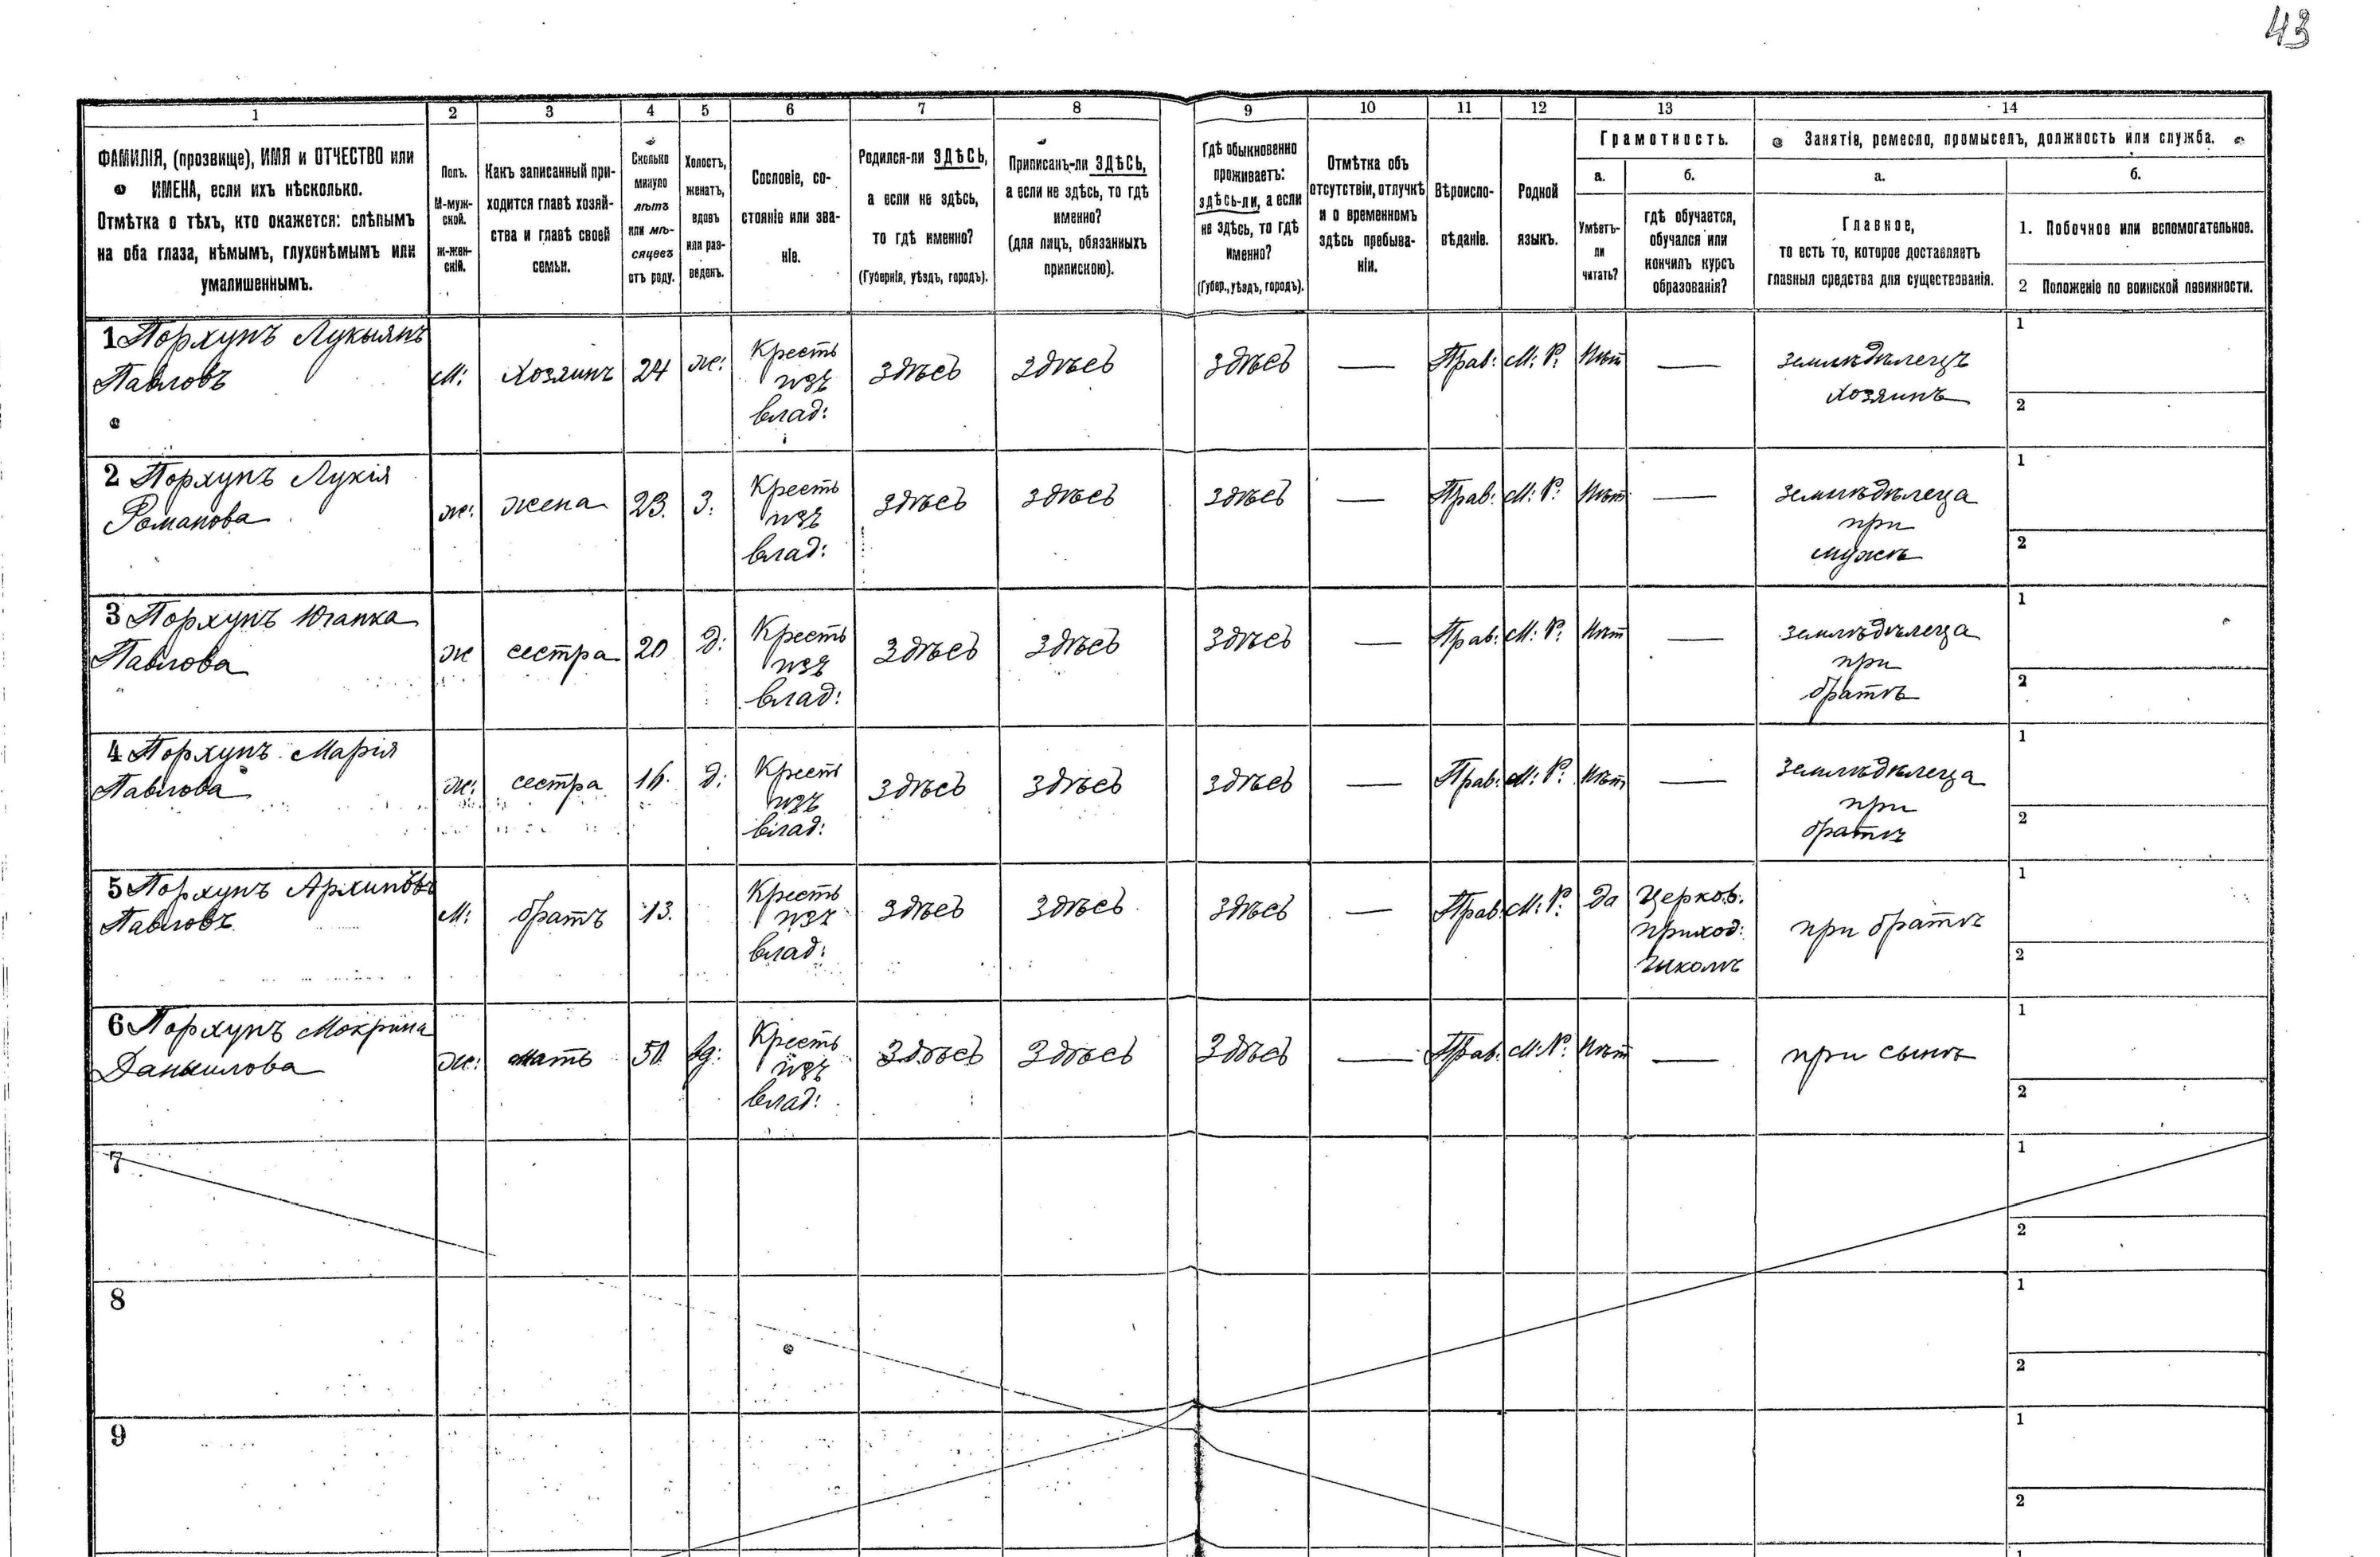 43
1 2 3 4 5 6 7 8 9 10 11 12 13 14
ФАМИЛІЯ, (прозвище), ИМЯ и ОТЧЕСТВО или
ИМЕНА, если ихъ нѣсколько.
Отмѣтка о тѣхъ, кто окажется: слѣпымъ
на оба глаза, нѣмымъ, глухонѣмымъ или
умалишеннымъ.
Полъ.
М-муж-
ской.
ж-жен-
скій.
Какъ записанный при-
ходится главѣ хозяй-
ства и главѣ своей
семьи.
Сколько
минуло
лѣтъ
или мѣ-
сяцевъ
отъ роду.
Холостъ,
женатъ,
вдовъ
или раз-
веденъ.
Сословіе, со-
стояніе или зва-
ніе.
Родился-ли ЗДѢСЬ,
а если не здѣсь,
то гдѣ именно?
(Губернія, уѣздъ, городъ).
Приписанъ-ли ЗДѢСЬ,
а если не здѣсь, то гдѣ
именно?
(для лицъ, обязанныхъ
припискою).
Гдѣ обыкновенно
проживаетъ:
здѣсь-ли, а если
не здѣсь, то гдѣ
именно?
(Губер., уѣздъ, городъ).
Отмѣтка объ
отсутствіи, отлучкѣ
и о временномъ
здѣсь пребыва-
ніи.
Вѣроиспо-
вѣданіе.
Родной
языкъ.
Грамотность.
а.
Умѣетъ-
ли
читать?
б.
гдѣ обучается,
обучался или
кончилъ курсъ
образованія?
Занятія, ремесло, промыселъ, должность или служба.
а.
Главное,
то есть то, которое доставляетъ
главныя средства для существованія.
б.
1. Побочное или вспомогательное.
2 Положеніе по воинской повинности.
1 Порхунъ Лукьянъ
Павловъ
М: Хозяинъ 24 ж:
Кресть
изъ
влад:
здѣсь здѣсь здѣсь — Прав: М: Р: Нѣт —
землѣдѣлецъ
хозяинъ
1
2
2 Порхунъ Лукія
Романова
ж: жена 23. З.
Кресть
изъ
влад:
здѣсь здѣсь здѣсь — Прав: М: Р: Нѣт —
землѣдѣлеца
при
мужѣ
1
2
3 Порхунъ Юганка
Павлова
ж сестра 20 д:
Кресть
изъ
влад:
здѣсь здѣсь здѣсь — Прав: М: Р: Нѣт —
землѣдѣлеца
при
братѣ
1
2
4 Порхунъ Марія
Павлова
ж: сестра 16. д:
Кресть
изъ
влад:
здѣсь здѣсь здѣсь — Прав: М: Р: Нѣт —
землѣдѣлеца
при
братѣ
1
2
5 Порхунъ
Павловъ
М: братъ 13.
Кресть
изъ
влад:
здѣсь здѣсь здѣсь — Прав: М: Р: да
Церков.
приход:
школѣ
при братѣ
1
2
6 Порхунъ Мокрина
Данилова
ж: мать 50 вд:
Кресть
изъ
влад:
здѣсь здѣсь здѣсь — Прав: М: Р: Нѣт —
при сынѣ
1
2
7
1
2
8
1
2
9
1
2
1